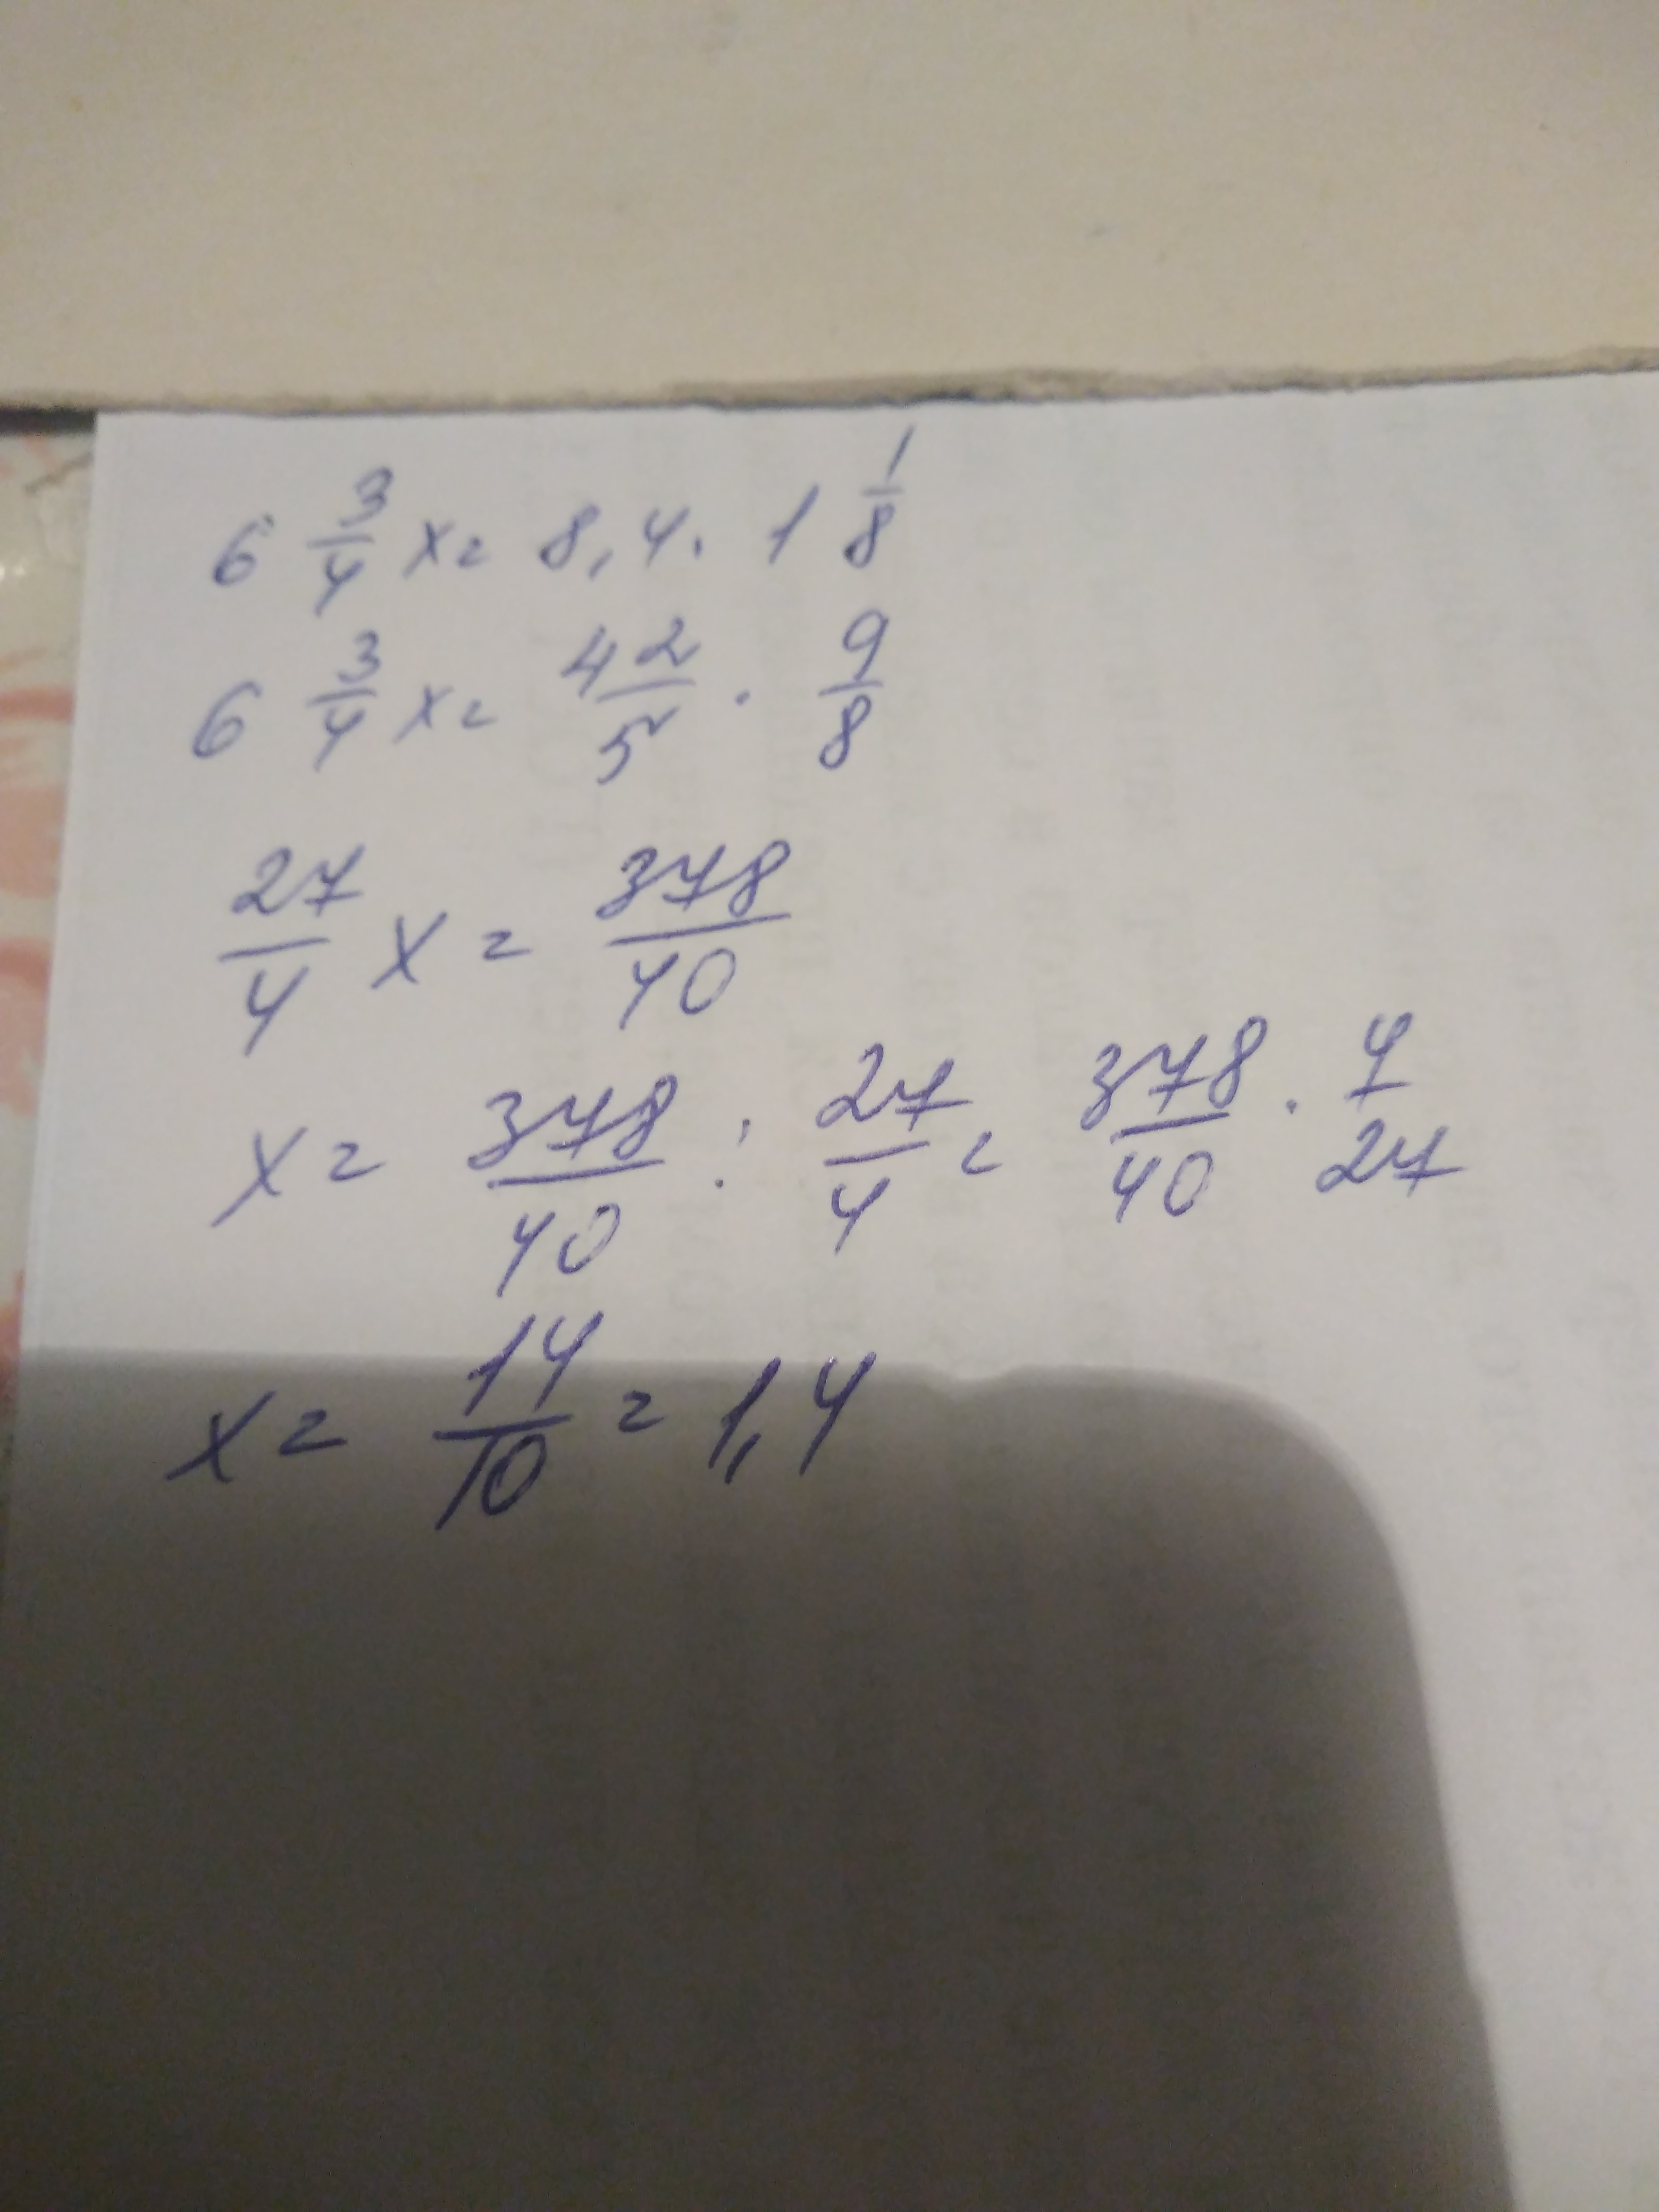 6 3/4 x = 8,4 · 1 1/8
6 3/4 x = 42/5 · 9/8
27/4 x = 378/40
x = 378/40 : 27/4 = 378/40 · 4/27
x = 14/10 = 1,4